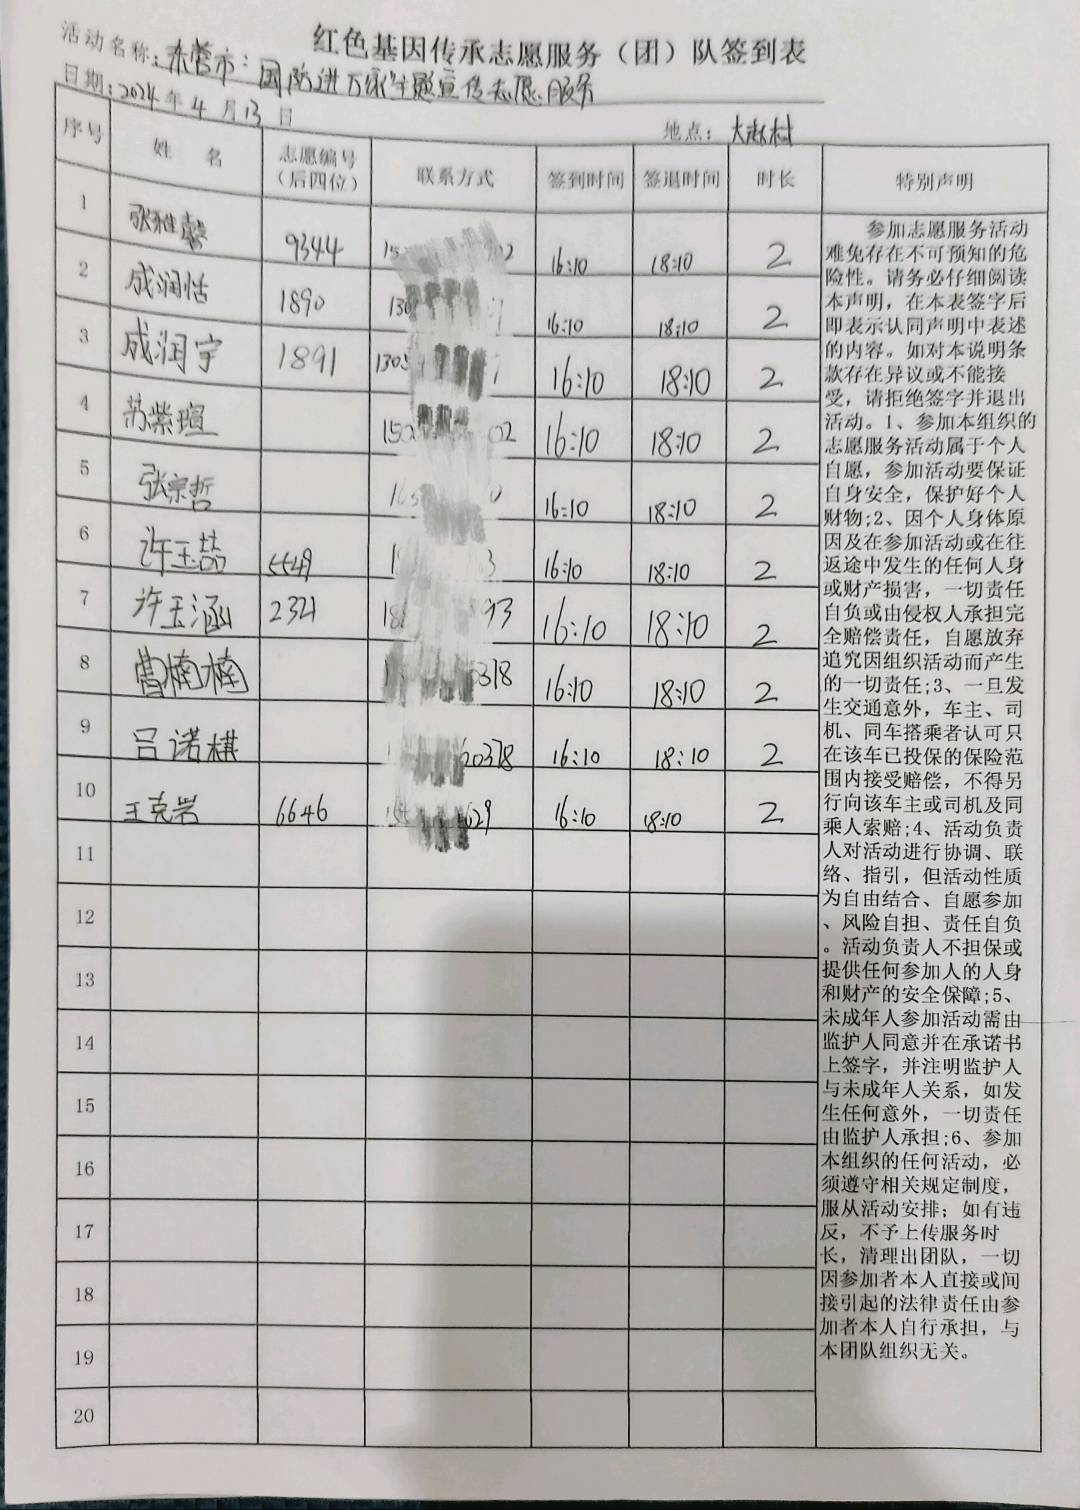 红色基因传承志愿服务（团）队签到表
活动名称：东营市：国防进万家主题宣传志愿服务
日期：2024年4月13日
地点：大赵村
序号 姓 名 志愿编号（后四位） 联系方式 签到时间 签退时间 时长 特别声明
1 张雅馨 9344 15 02 16:10 18:10 2
2 成润恬 1890 130 16:10 18:10 2
3 成润宇 1891 1305 16:10 18:10 2
4 苏紫瑄 150 02 16:10 18:10 2
5 张宗哲 16:10 18:10 2
6 许玉喆 5549 1 3 16:10 18:10 2
7 许玉涵 2321 18 93 16:10 18:10 2
8 曹楠楠 0318 16:10 18:10 2
9 吕诺棋 20378 16:10 18:10 2
10 王克岩 6646 629 16:10 18:10 2
11
12
13
14
15
16
17
18
19
20
参加志愿服务活动
难免存在不可预知的危
险性。请务必仔细阅读
本声明，在本表签字后
即表示认同声明中表述
的内容。如对本说明条
款存在异议或不能接
受，请拒绝签字并退出
活动。1、参加本组织的
志愿服务活动属于个人
自愿，参加活动要保证
自身安全，保护好个人
财物;2、因个人身体原
因及在参加活动或在往
返途中发生的任何人身
或财产损害，一切责任
自负或由侵权人承担完
全赔偿责任，自愿放弃
追究因组织活动而产生
的一切责任;3、一旦发
生交通意外，车主、司
机、同车搭乘者认可只
在该车已投保的保险范
围内接受赔偿，不得另
行向该车主或司机及同
乘人索赔;4、活动负责
人对活动进行协调、联
络、指引，但活动性质
为自由结合、自愿参加
、风险自担、责任自负
。活动负责人不担保或
提供任何参加人的人身
和财产的安全保障;5、
未成年人参加活动需由
监护人同意并在承诺书
上签字，并注明监护人
与未成年人关系，如发
生任何意外，一切责任
由监护人承担;6、参加
本组织的任何活动，必
须遵守相关规定制度，
服从活动安排；如有违
反，不予上传服务时
长，清理出团队，一切
因参加者本人直接或间
接引起的法律责任由参
加者本人自行承担，与
本团队组织无关。